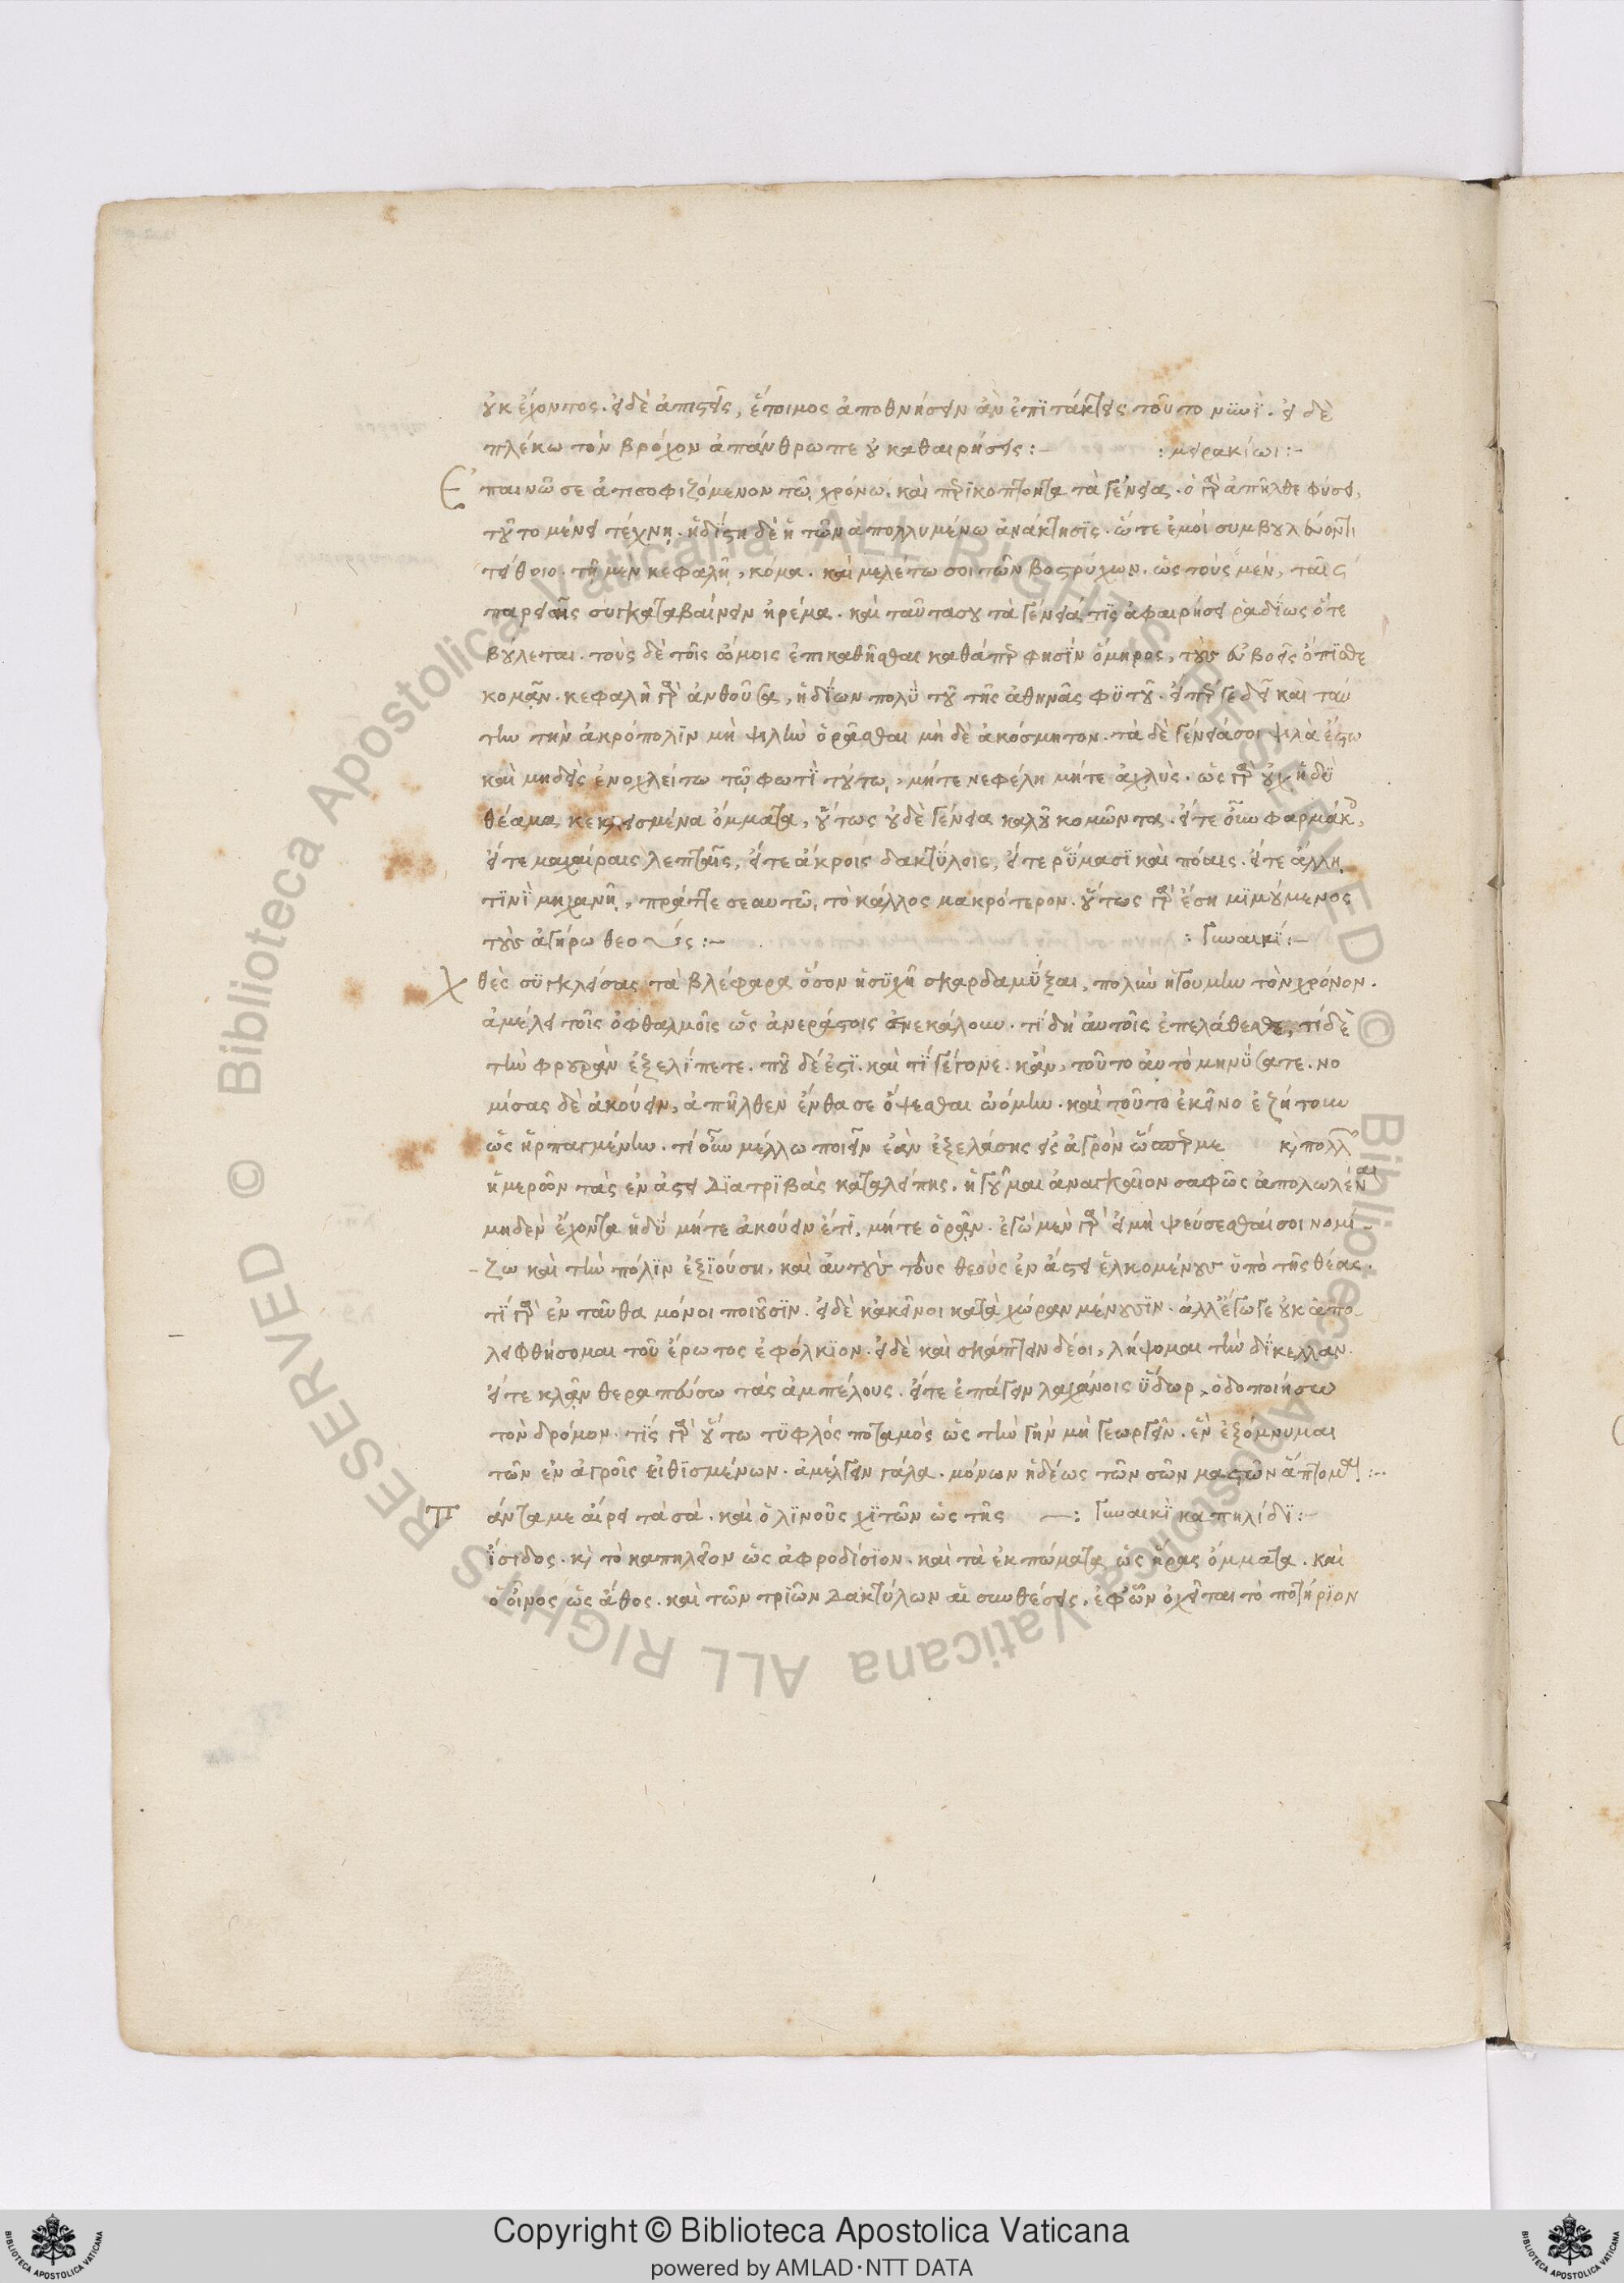 οὐκ ἔχοντος. εἰ δὲ ἀπιστεῖς, ἕτοιμος ἀποθνήσκειν ἂν ἐπϊτάκτης τοῦτο νῦνϊ. εἰ δὲ
πλέκω τὸν βρόχον ἀπάνθρωπε οὐ καθαιρήσεις :– : μειρακίωι :–
Ἐπαινῶ σε ἀπισοφιζόμενον τῷ χρόνω. καὶ περϊκόπτοντα τὰ γένεια. ὁ γὰρ ἀπῆλθε φύσει,
τοῦτο μένει τέχνῃ. ἡδίστη δὲ ἡ τῶν ἀπολλυμένω ἀνάκτησϊς. ὥστε ἐμοὶ συμβουλεύοντι
πείθοιο. τῇ μὲν κεφαλῇ, κόμα. καὶ μελέτω σοι τῶν βοστρύχων. ὡς τοὺς μέν, ταῖς
παρειαῖς συγκαταβαίνειν ἠρέμα. καὶ ταῦτα σου τὰ γένειά τϊς ἀφαιρήσει ῥαδΐως ὅτε
βούλεται. τοὺς δὲ τοῖς ὤμοις ἐπικαθῆσθαι καθάπερ φησΐν ὅμηρος, τοὺς εὐβοεῖς ὄπϊσθε
κομᾶν. κεφαλὴ γὰρ ἀνθοῦσα, ἡδΐων πολῢ τοῦ τῆς ἀθηνᾶς φϋτοῦ. ἐπεί γε δεῖ καὶ ταύ
την τὴν ἀκρόπολϊν μὴ ψιλὴν ὁρᾶσθαι μὴ δὲ ἀκόσμητον. τὰ δὲ γένειά σοι ψιλὰ ἔστω
καὶ μηδεὶς ἐνοχλείτω τῷ φωτῒ τούτω, μήτε νεφέλη μήτε ἀχλὺς. ὡς γὰρ οὐχ ἡδῢ
θέαμα κεκλεισμένα ὄμματα, οὕτως οὐδὲ γένεια καλοῦ κομῶντα. εἴτε οὖν φαρμάκοις,
εἴτε μαχαίραις λεπταῖς, εἴτε ἄκροις δακτΰλοις, εἴτε ῥΰμασϊ καὶ πόαις. εἴτε ἄλλη
τϊνῒ μηχανῇ, πράττε σεαυτῶ τὸ κάλλος μακρότερον. οὕτως γὰρ ἔσῃ μϊμούμενος
τοὺς ἀγήρω θεούς :– : Γυναικΐ :–
Χθὲς σϋγκλείσας τὰ βλέφαρα ὅσον ἡσϋχῇ σκαρδαμΰξαι, πολὺν ἡγούμην τὸν χρόνον.
ἀμέλει τοῖς ὀφθαλμοῖς ὡς ἀνεράστοις ἐνεκάλουν. τΐ δὴ αὐτοῖς ἐπελάθεσθε, τί δὲ
τὴν φρουρὰν ἐξελΐπετε. ποῦ δέ ἐστϊ. καὶ τΐ γέγονε. κἂν, τοῦτο αὐτὸ μηνΰσατε. νο
μίσας δὲ ἀκούειν, ἀπῆλθεν ἔνθα σε ὄψεσθαι ᾠόμην. καὶ τοῦτο ἐκεῖνο ἐζήτουν
ὡς ἡρπαγμένην. τί οὖν μέλλω ποιεῖν ἐὰν ἐξελάσης εἰς ἀγρὸν ὥσπερ με καὶ πολλῶν
ἡμερῶν τὰς ἐν ἄστει Διατρϊβὰς καταλείπης. ἡγοῦμαι ἀναγκαῖον σαφῶς ἀπολωλέναι
μηδὲν ἔχοντα ἡδῢ μήτε ἀκούειν ἔτϊ, μήτε ὁρᾶν. ἐγὼ μὲν γὰρ εἰ μὴ ψεύσεσθαί σοι νομί–
–ζω καὶ τὴν πόλϊν ἐξϊούση, καὶ αὐτοὺς τοὺς θεοὺς ἐν ἄστει ἑλκομένους ὑπὸ τῆς θέας.
τΐ γὰρ ἐν ταῦθα μόνοι ποιοῦσϊν. εἰ δὲ κἀκεῖνοι κατὰ χώραν μένουσϊν. ἀλλ' ἔγωγε οὐκ ἀπο
λειφθήσομαι τοῦ ἔρωτος ἐφόλκϊον. εἰ δὲ καὶ σκάπτειν δέοι, λήψομαι τὴν δΐκελλαν.
εἴτε κλᾶν θεραπεύσω τὰς ἀμπέλους. εἴτε ἐπάγειν λαχάνοις ὕδωρ, ὁδοποιήσω
τὸν δρόμον. τΐς γὰρ οὕτω τϋφλὸς ποταμὸς ὡς τὴν γῆν μὴ γεωργεῖν. ἓν ἐξόμνυμαι
τῶν ἐν ἀγροῖς εἰθϊσμένων. ἀμέλγειν γάλα. μόνων ἡδέως τῶν σῶν μαστῶν ἅπτομαι :–
Πάντα με αἱρεῖ τὰ σὰ. καὶ ὁ λϊνοῦς χϊτῶν ὡς τῆς —: Γυναικῒ καπηλίδϊ :–
ἴσιδος. καὶ τὸ καπηλεῖον ὡς ἀφροδίσϊον. καὶ τὰ ἐκπώματα ὡς ἥρας ὄμματα. καὶ
ὁ οἶνος ὡς ἄθος. καὶ τῶν τρϊῶν Δακτύλων αἱ συνθέσεις, ἐφ' ὧν ὀχεῖται τὸ ποτήρϊον
Copyright © Biblioteca Apostolica Vaticana
powered by AMLAD·NTT DATA